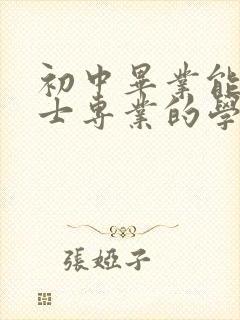 初中畢業能
士專業的學
張婭子